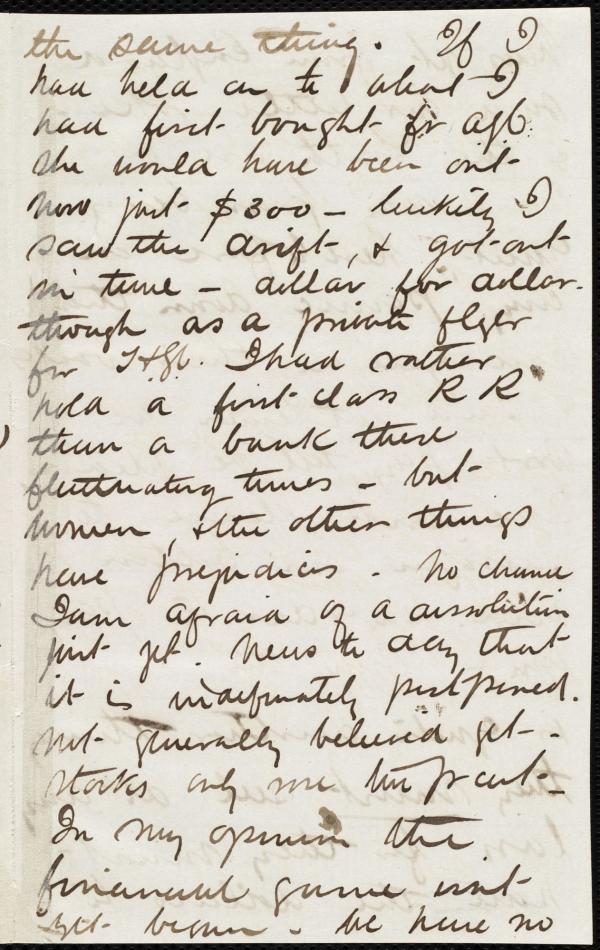 the same thing. If I
had held on to what I
had first bought for
she would have been out
now just $300 - luckily I
saw the drift, & got out
in time - dollar for dollar.
though as a private flyer
for I had rather
hold a first class R R
than a bank these
fluttuating times - but
women, & the other things
have prejudices. No chance
I am afraid of a dissolution
just yet. News to day that
it is indefinately postponed.
Not generally believed yet -
Stocks only rose two pr cent -
In my opinion the
financial game isnt
yet begun - We have no